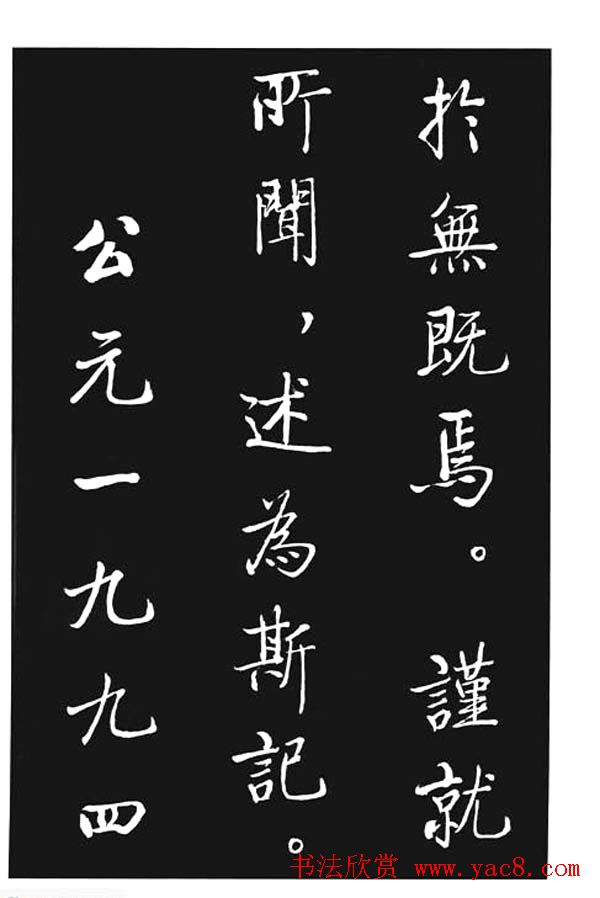 於無既焉。謹就
所聞，述為斯記。
公元一九九四
书法欣赏 www.yac8.com